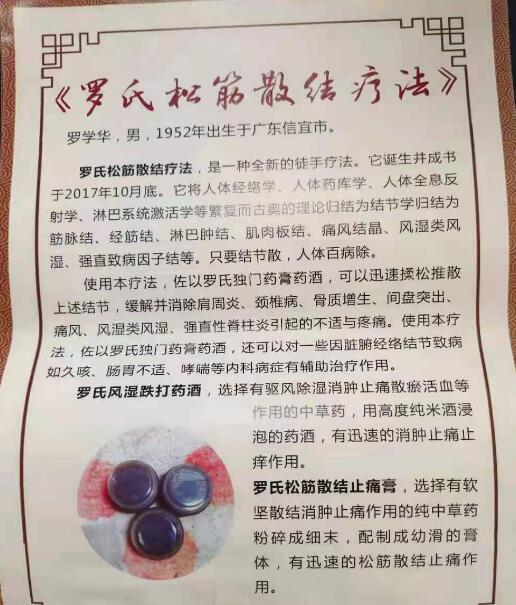 《罗氏松筋散结疗法》
罗学华，男，1952年出生于广东信宜市。
罗氏松筋散结疗法，是一种全新的徒手疗法。它诞生并成书
于2017年10月底。它将人体经络学、人体药库学、人体全息反
射学、淋巴系统激活学等繁复而古奥的理论归结为结节学归结为
筋脉结、经筋结、淋巴肿结、肌肉板结、痛风结晶、风湿类风
湿、强直致病因子结等。只要结节散，人体百病除。
使用本疗法，佐以罗氏独门药膏药酒，可以迅速揉松推散
上述结节，缓解并消除肩周炎、颈椎病、骨质增生、间盘突出、
痛风、风湿类风湿、强直性脊柱炎引起的不适与疼痛。使用本疗
法，佐以罗氏独门药膏药酒，还可以对一些因脏腑经络结节致病
如久咳、肠胃不适、哮喘等内科病症有辅助治疗作用。
罗氏风湿跌打药酒，选择有驱风除湿消肿止痛散瘀活血等
作用的中草药，用高度纯米酒浸
泡的药酒，有迅速的消肿止痛止
痒作用。
罗氏松筋散结止痛膏，选择有软
坚散结消肿止痛作用的纯中草药
粉碎成细末，配制成幼滑的膏
体，有迅速的松筋散结止痛作
用。